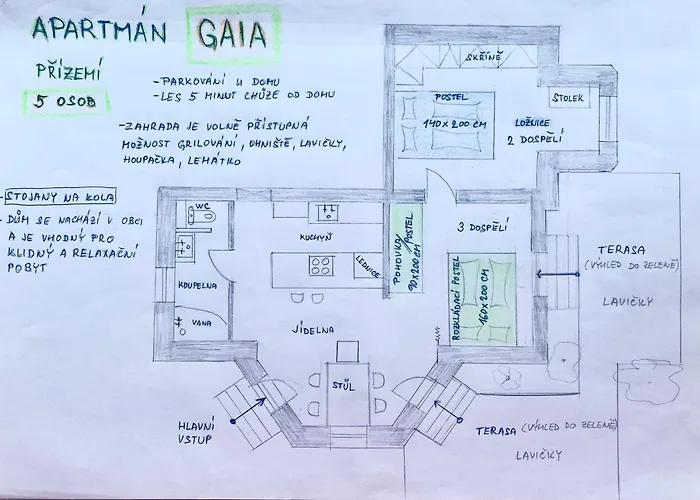 APARTMÁN GAIA
PŘÍZEMÍ
5 OSOB
-PARKOVÁNÍ U DOMU
-LES 5 MINUT CHŮZE OD DOMU
-ZAHRADA JE VOLNĚ PŘÍSTUPNÁ
MOŽNOST GRILOVÁNÍ, OHNIŠTĚ, LAVIČKY,
HOUPAČKA, LEHÁTKO
-STOJANY NA KOLA
- DŮM SE NACHÁZÍ V OBCI
A JE VHODNÝ PRO
KLIDNÝ A RELAXAČNÍ
POBYT
SKŘÍNĚ
POSTEL
140 x 200 CM
STOLEK
LOŽNICE
2 DOSPĚLÍ
WC
KOUPELNA
VANA
KUCHYŇ
LEDNICE
JÍDELNA
STŮL
POHOVKA/POSTEL
90 x 200 CM
3 DOSPĚLÍ
ROZKLÁDACÍ POSTEL
160 x 200 CM
TERASA
(VÝHLED DO ZELENĚ)
LAVIČKY
HLAVNÍ
VSTUP
TERASA (VÝHLED DO ZELENĚ)
LAVIČKY